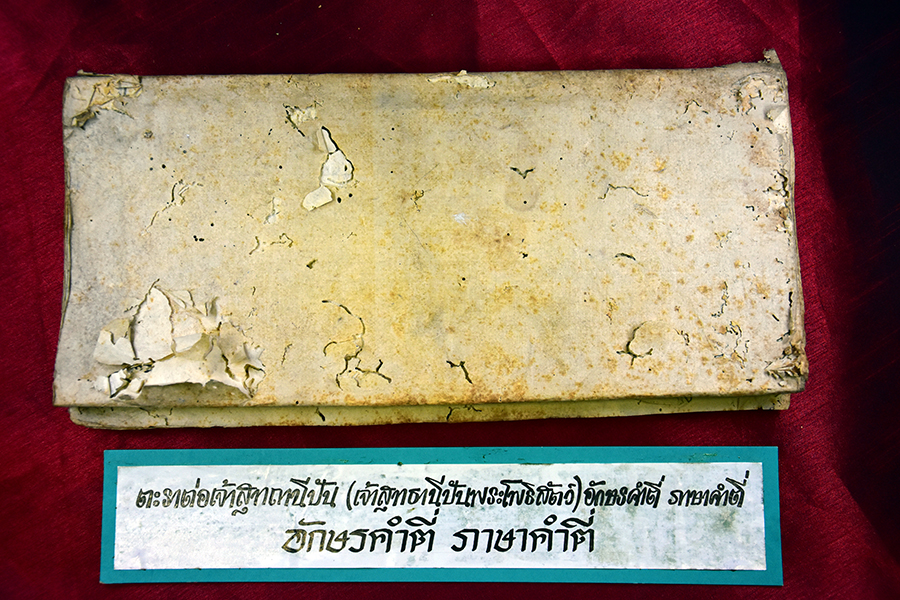 ตะราต่อเจ้าสิทถทนีปัน (เจ้าสิทธานีปันพระโพธิสัตว์) อักษรคำตี่ ภาษาคำตี่
อักษรคำตี่ ภาษาคำตี่